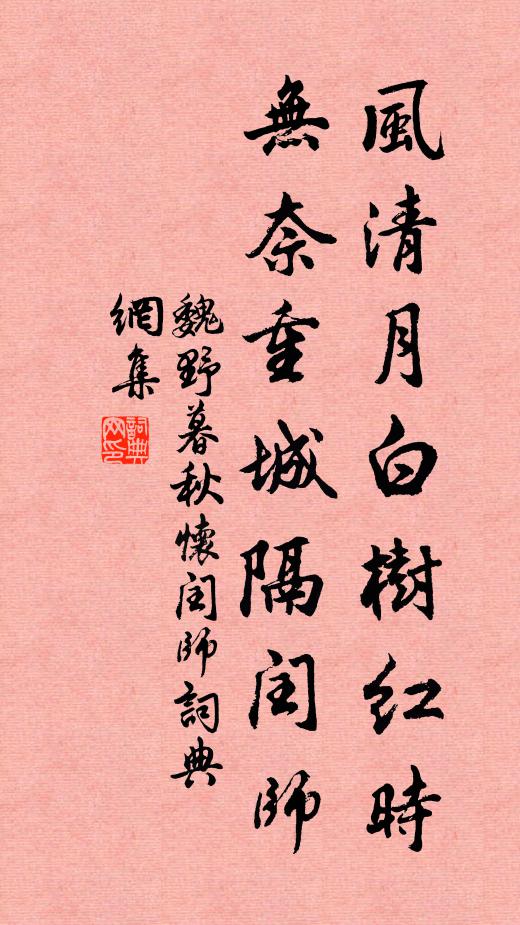 風清月白樹紅時
無奈重城隔閏師
魏野暮秋懷閏師詞典
網集
詞典
网印